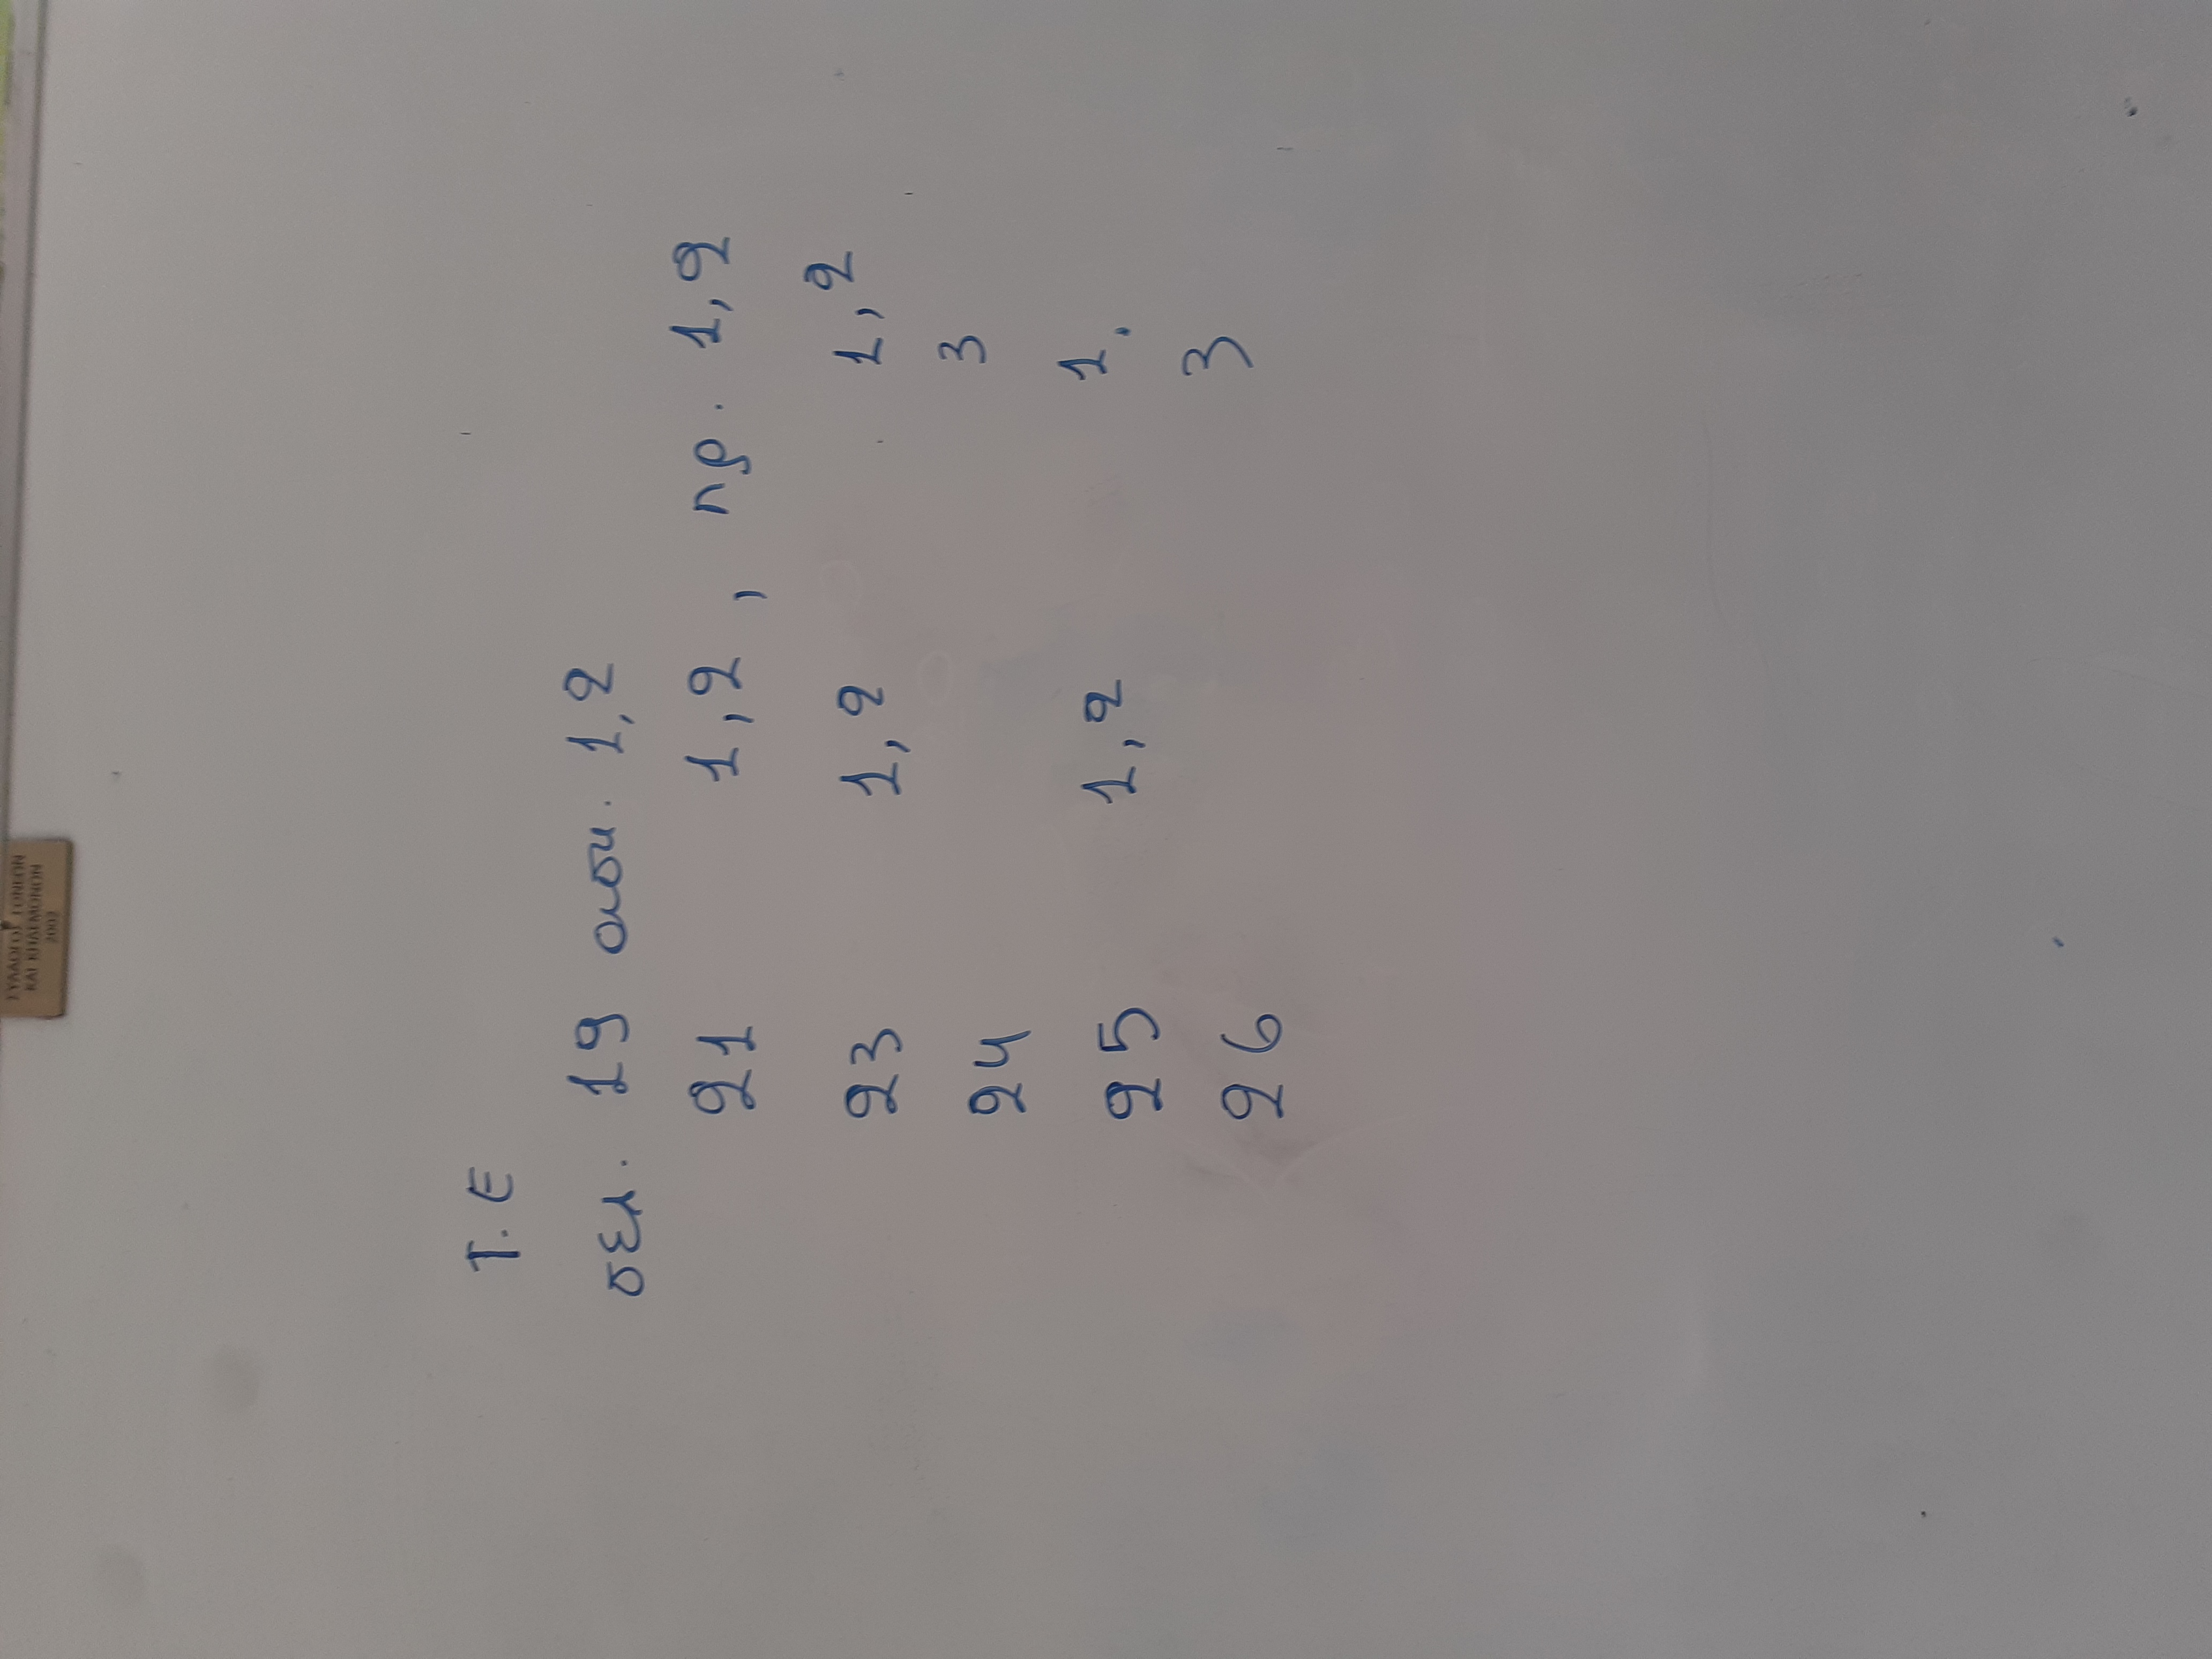 ΣΥΛΛΟΓΟΣ ΓΟΝΕΩΝ
ΚΑΙ ΚΗΔΕΜΟΝΩΝ
2003
Τ.Ε
σελ. 19 ασκ. 1,2
21 1,2, πρ. 1,2
23 1,2 1,2
24 3
25 1,2 1.
26 3